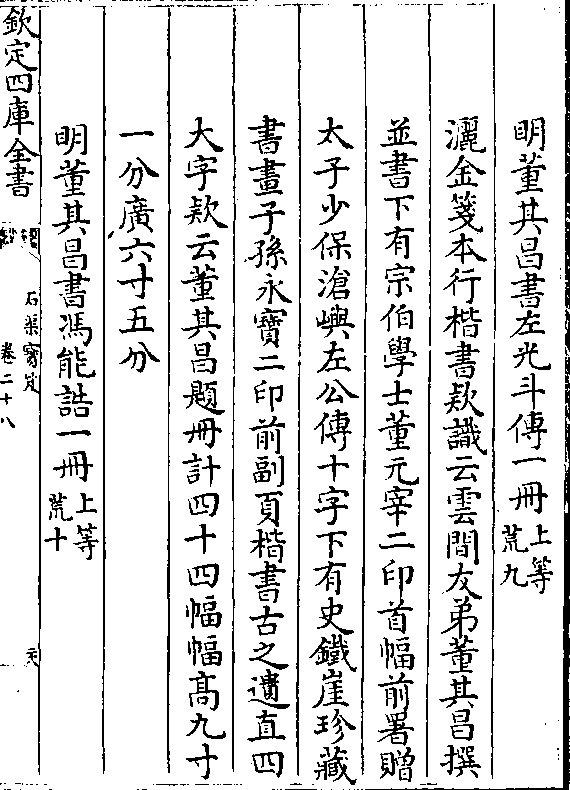 明董其昌書左光斗傳一冊上等荒九
灑金箋本行楷書欵識云雲間友弟董其昌撰
並書下有宗伯學士董元宰二印首幅前署贈
太子少保滄嶼左公傳十字下有史鐵崖珍藏
書畫子孫永寶二印前副頁楷書古之遺直四
大字欵云董其昌題冊計四十四幅幅高九寸
一分廣六寸五分
明董其昌書馮能誥一冊上等荒十
欽定四庫全書
石渠寶笈
卷二十八